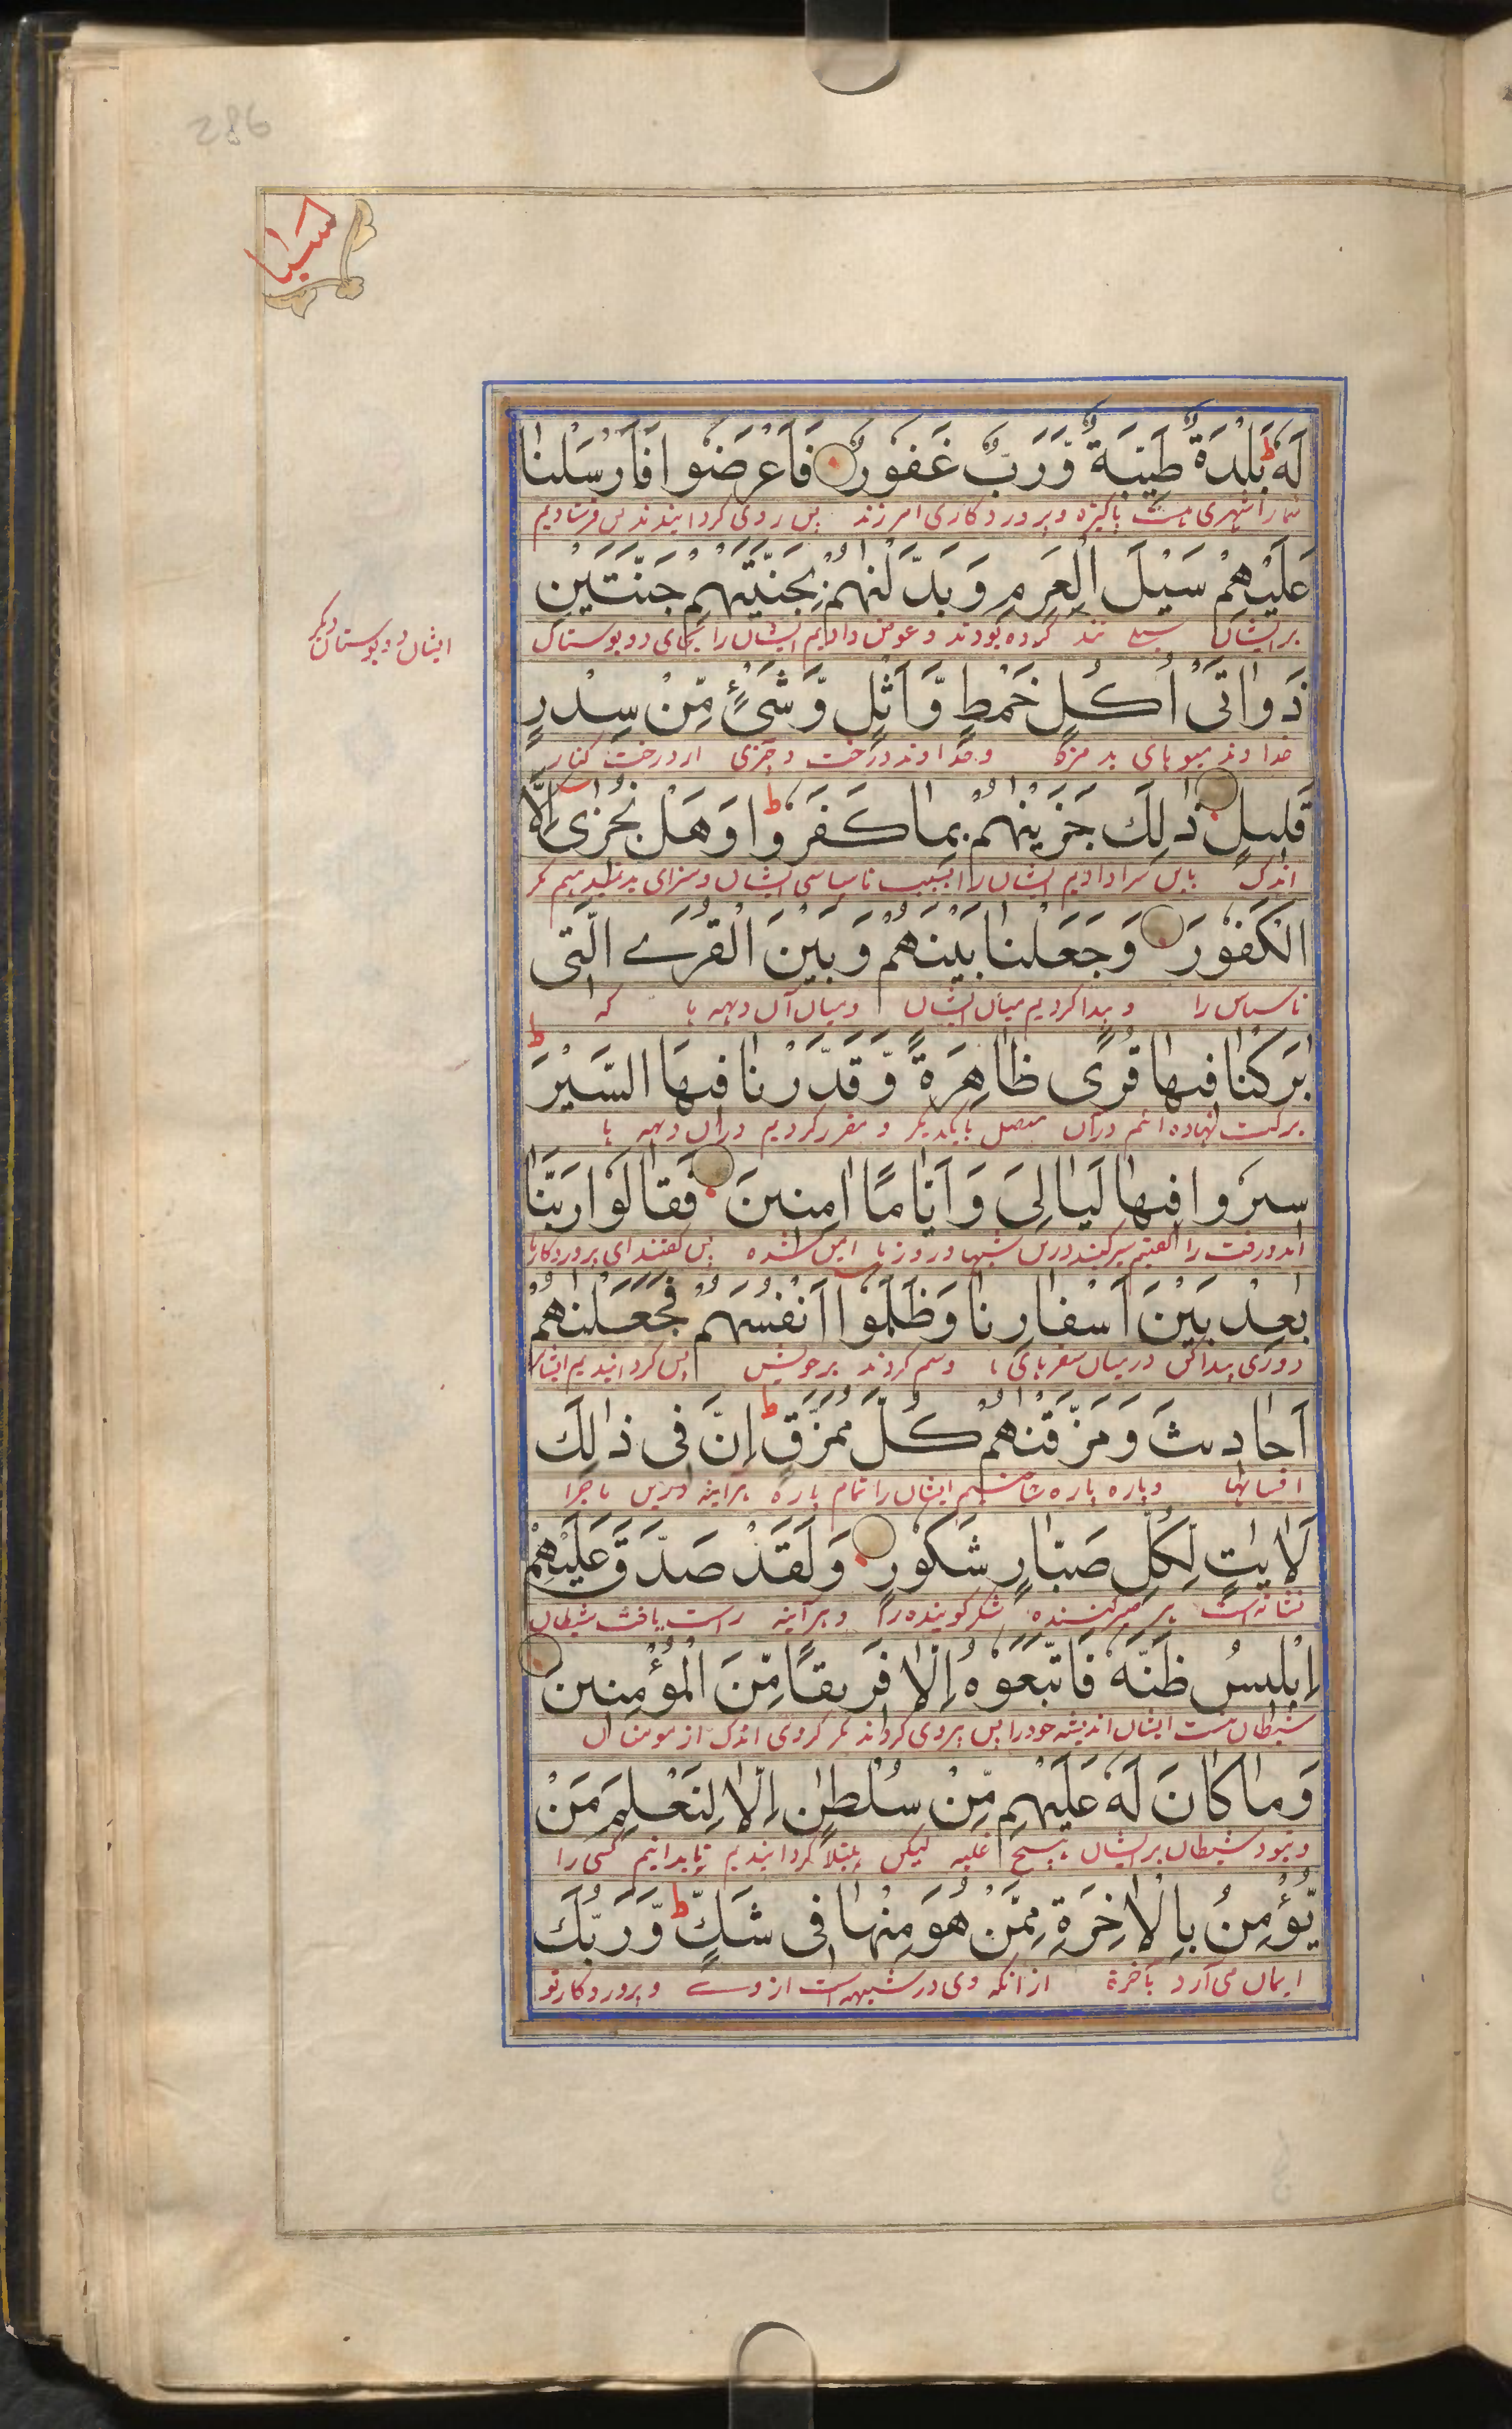 286
سبا
لَهٗ ط بَلْدَةٌ طَيِّبَةٌ وَّرَبٌّ غَفُوْرٌ فَاَعْرَضُوْا فَاَرْسَلْنَا
شما را شهری هست پاکیزه و پروردگاری امرزند پس روی کردانیدند پس فرستادیم
عَلَيْهِمْ سَيْلَ الْعَرِمِ وَبَدَّلْنٰهُمْ بِجَنَّتَيْهِمْ جَنَّتَيْنِ
بر ایشان سیلی تند کرده بودند و عوض دادیم ایشان را بجای دو بوستان
ایشان دو بوستان دیگر
ذَوَاتَىْ اُكُلٍ خَمْطٍ وَّاَثْلٍ وَّشَىْءٍ مِّنْ سِدْرٍ
خداوند میوهای بد مزه و خداوند درخت و چیزی از درخت کنار
قَلِيْلٍ ذٰلِكَ جَزَيْنٰهُمْ بِمَا كَفَرُوْا ط وَهَلْ نُجٰزِىْ اِلَّا
اندک باین سزا دادیم ایشان را بسبب ناسپاسی ایشان و سزای بد نمیدهیم مکر
الْكَفُوْرَ وَجَعَلْنَا بَيْنَهُمْ وَبَيْنَ الْقُرَے الَّتِىْ
ناسپاس را و پیدا کردیم میان ایشان و میان آن دیهه ها که
بٰرَكْنَا فِيْهَا قُرًى ظَاهِرَةً وَّقَدَّرْنَا فِيْهَا السَّيْرَ ط
برکت نهاده ایم درآن متصل بایکدیکر و مقرر کردیم دران دیهه ها
سِيْرُوْا فِيْهَا لَيَالِىَ وَاَيَّامًا اٰمِنِيْنَ فَقَالُوْا رَبَّنَا
امدورفت را کفتیم سیر کنید درین شبها و روزها ایمن شده پس کفتند ای پروردکار ما
بٰعِدْ بَيْنَ اَسْفَارِنَا وَظَلَمُوْا اَنْفُسَهُمْ فَجَعَلْنٰهُمْ
دوری پیدا کن درمیان سفرهای ما و ستم کردند بر خویش پس کردانیدیم ایشان
اَحَادِيْثَ وَمَزَّقْنٰهُمْ كُلَّ مُمَزَّقٍ ط اِنَّ فِىْ ذٰلِكَ
افسانها و پاره پاره ساختیم ایشان را تمام پاره هرآینه درین ماجرا
لَاٰيٰتٍ لِّكُلِّ صَبَّارٍ شَكُوْرٍ وَلَقَدْ صَدَّقَ عَلَيْهِمْ
نشانهاست هر صبر کننده شکر کوینده را و هرآینه راست یافت شیطان
اِبْلِيْسُ ظَنَّهٗ فَاتَّبَعُوْهُ اِلَّا فَرِيْقًا مِّنَ الْمُؤْمِنِيْنَ
ایشان اندیشه خود را پس پیروی کردند مکر کروهی اندک از مومنان
وَمَا كَانَ لَهٗ عَلَيْهِمْ مِّنْ سُلْطٰنٍ اِلَّا لِنَعْلَمَ مَنْ
و نبود شیطان بر ایشان هیچ غلبه لیکن مبتلا کردانیدیم تا بدانیم کسی را
يُّؤْمِنُ بِالْاٰخِرَةِ مِمَّنْ هُوَ مِنْهَا فِىْ شَكٍّ ط وَّرَبُّكَ
ایمان می آرد بآخرة از انکه وی در شبهه است از وے و پروردکار تو